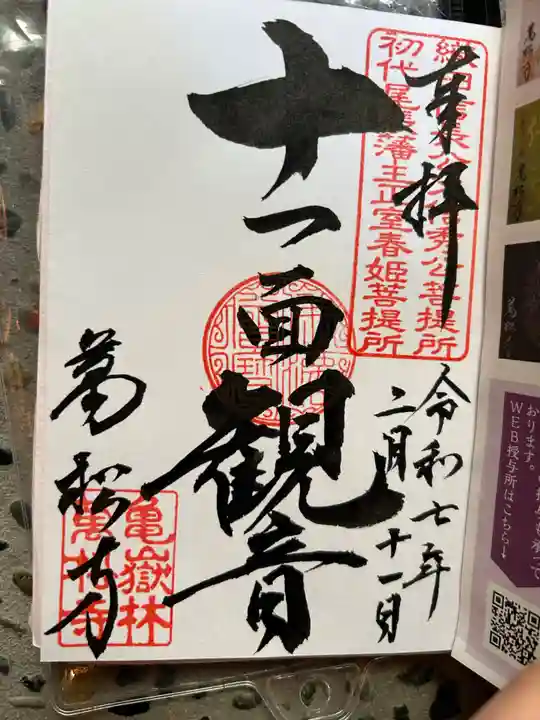 奉拝
織田信長公父信秀公菩提所
初代尾張藩主正室春姫菩提所
十一面観音
令和七年
二月十一日
萬松寺
亀嶽林
萬松寺
おります。
WEB授与所はこちら↓